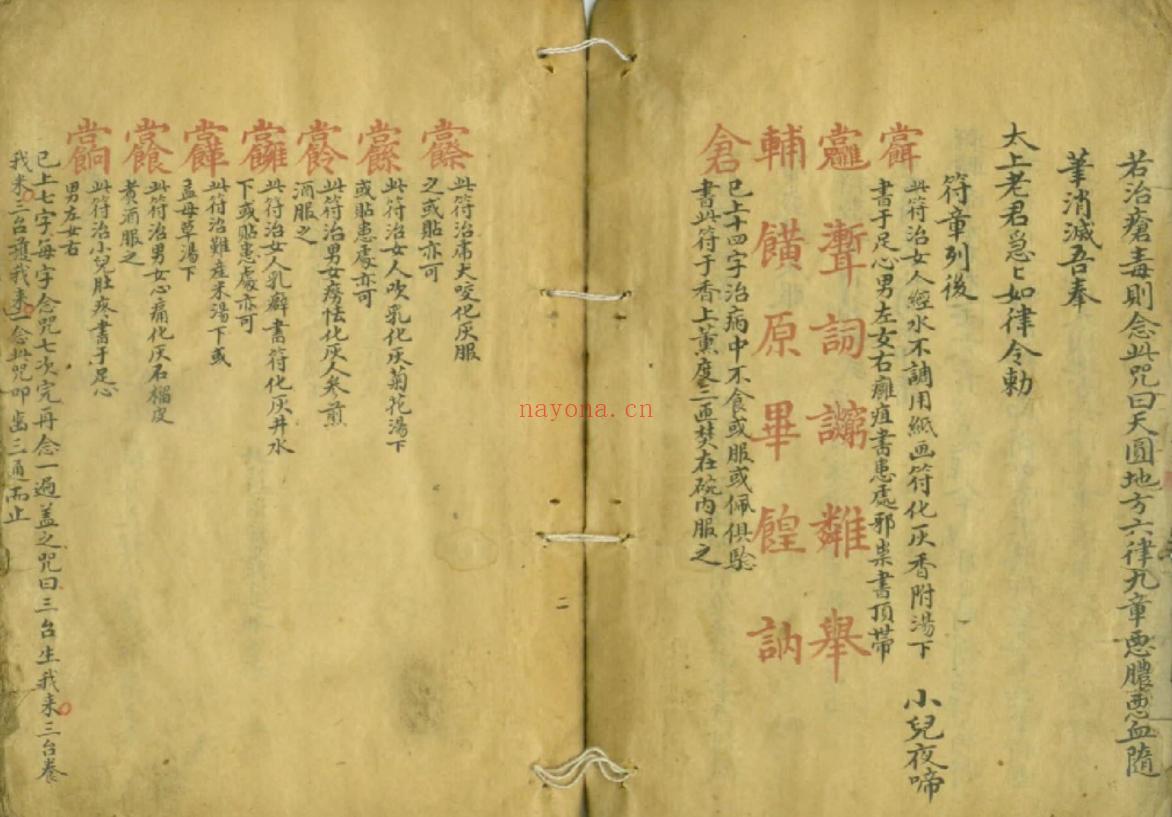 若治瘡毒則念此咒曰天圓地方六律九章惡膿惡血隨
筆消滅吾奉
太上老君急〻如律令勅
符章列後
此符治女人經水不調用紙画符化灰香附湯下
書于足心男左女右癰疽書患處邪祟書頂帶
小兒夜啼
詞難舉
輔饙原畢餭訥
倉
已上十四字治病中不食或服或佩俱騐
書此符于香上薰度三匝焚在碗内服之
二
此符治席犬咬化灰服
之或貼亦可
此符治女人吹乳化灰菊花湯下
或貼患處亦可
此符治男女癆怯化灰人參煎
酒服之
此符治女人乳癖書符化灰井水
下或貼患處亦可
此符治難産米湯下或
益母草湯下
此符治男女心痛化灰石榴皮
煮酒服之
此符治小兒肚疼書于足心
男左女右
已上七字每字念咒七次完再念一遍盖之咒曰三台生我來三台養
我來三台護我來念此咒叩齒三通而止
nayona.cn